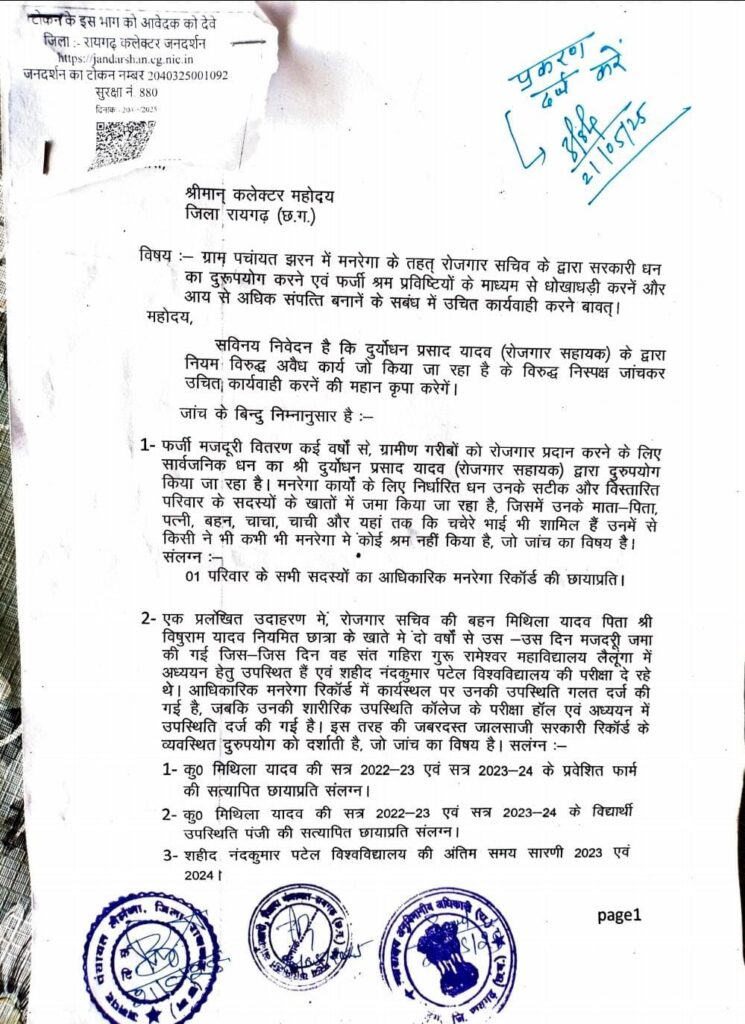 टोकन के इस भाग को आवेदक को देवे
जिला :- रायगढ़ कलेक्टर जनदर्शन
https://jandarshan.cg.nic.in
जनदर्शन का टोकन नम्बर 2040325001092
सुरक्षा नं. 880
प्रकरण
दर्ज करें
21/05/25
श्रीमान् कलेक्टर महोदय
जिला रायगढ़ (छ.ग.)
विषय :– ग्राम पचांयत झरन में मनरेगा के तहत् रोजगार सचिव के द्वारा सरकारी धन
का दुरूपयोग करने एवं फर्जी श्रम प्रविष्टियों के माध्यम से धोखाधड़ी करनें और
आय से अधिक संपत्ति बनानें के सबंध में उचित कार्यवाही करने बावत्।
महोदय,
सविनय निवेदन है कि दुर्योधन प्रसाद यादव (रोजगार सहायक) के द्वारा
नियम विरुद्ध अवैध कार्य जो किया जा रहा है के विरुद्ध निस्पक्ष जांचकर
उचित कार्यवाही करनें की महान कृपा करेगें।
जांच के बिन्दु निम्नानुसार है :–
1- फर्जी मजदूरी वितरण कई वर्षों से, ग्रामीण गरीबों को रोजगार प्रदान करने के लिए
सार्वजनिक धन का श्री दुर्योधन प्रसाद यादव (रोजगार सहायक) द्वारा दुरुपयोग
किया जा रहा है। मनरेगा कार्यो के लिए निर्धारित धन उनके सटीक और विस्तारित
परिवार के सदस्यों के खातों में जमा किया जा रहा है, जिसमें उनके माता–पिता,
पत्नी, बहन, चाचा, चाची और यहां तक कि चचेरे भाई भी शामिल हैं उनमें से
किसी ने भी कभी भी मनरेगा मे कोई श्रम नहीं किया है, जो जांच का विषय है।
संलग्न :–
01 परिवार के सभी सदस्यों का आधिकारिक मनरेगा रिकॉर्ड की छायाप्रति।
2- एक प्रलेखित उदाहरण में, रोजगार सचिव की बहन मिथिला यादव पिता श्री
विषुराम यादव नियमित छात्रा के खाते मे दो वर्षो से उस –उस दिन मजदरूी जमा
की गई जिस–जिस दिन वह संत गहिरा गुरू रामेश्वर महाविद्यालय लैलूंगा में
अध्ययन हेतु उपस्थित हैं एवं शहीद नंदकुमार पटेल विश्वविद्यालय की परीक्षा दे रहे
थे। आधिकारिक मनरेगा रिकॉर्ड में कार्यस्थल पर उनकी उपस्थिति गलत दर्ज की
गई है, जबकि उनकी शारीरिक उपस्थिति कॉलेज के परीक्षा हॉल एवं अध्ययन में
उपस्थिति दर्ज की गई है। इस तरह की जबरदस्त जालसाजी सरकारी रिकॉर्ड के
व्यवस्थित दुरुपयोग को दर्शाती है, जो जांच का विषय है। सलंग्न :–
1- कु0 मिथिला यादव की सत्र 2022–23 एवं सत्र 2023–24 के प्रवेशित फार्म
की सत्यापित छायाप्रति संलग्न।
2- कु0 मिथिला यादव की सत्र 2022–23 एवं सत्र 2023–24 के विद्यार्थी
उपस्थिति पंजी की सत्यापित छायाप्रति संलग्न।
3- शहीद नंदकुमार पटेल विश्वविद्यालय की अंतिम समय सारणी 2023 एवं
2024।
page1
जनपद पंचायत लैलूंगा, जिला